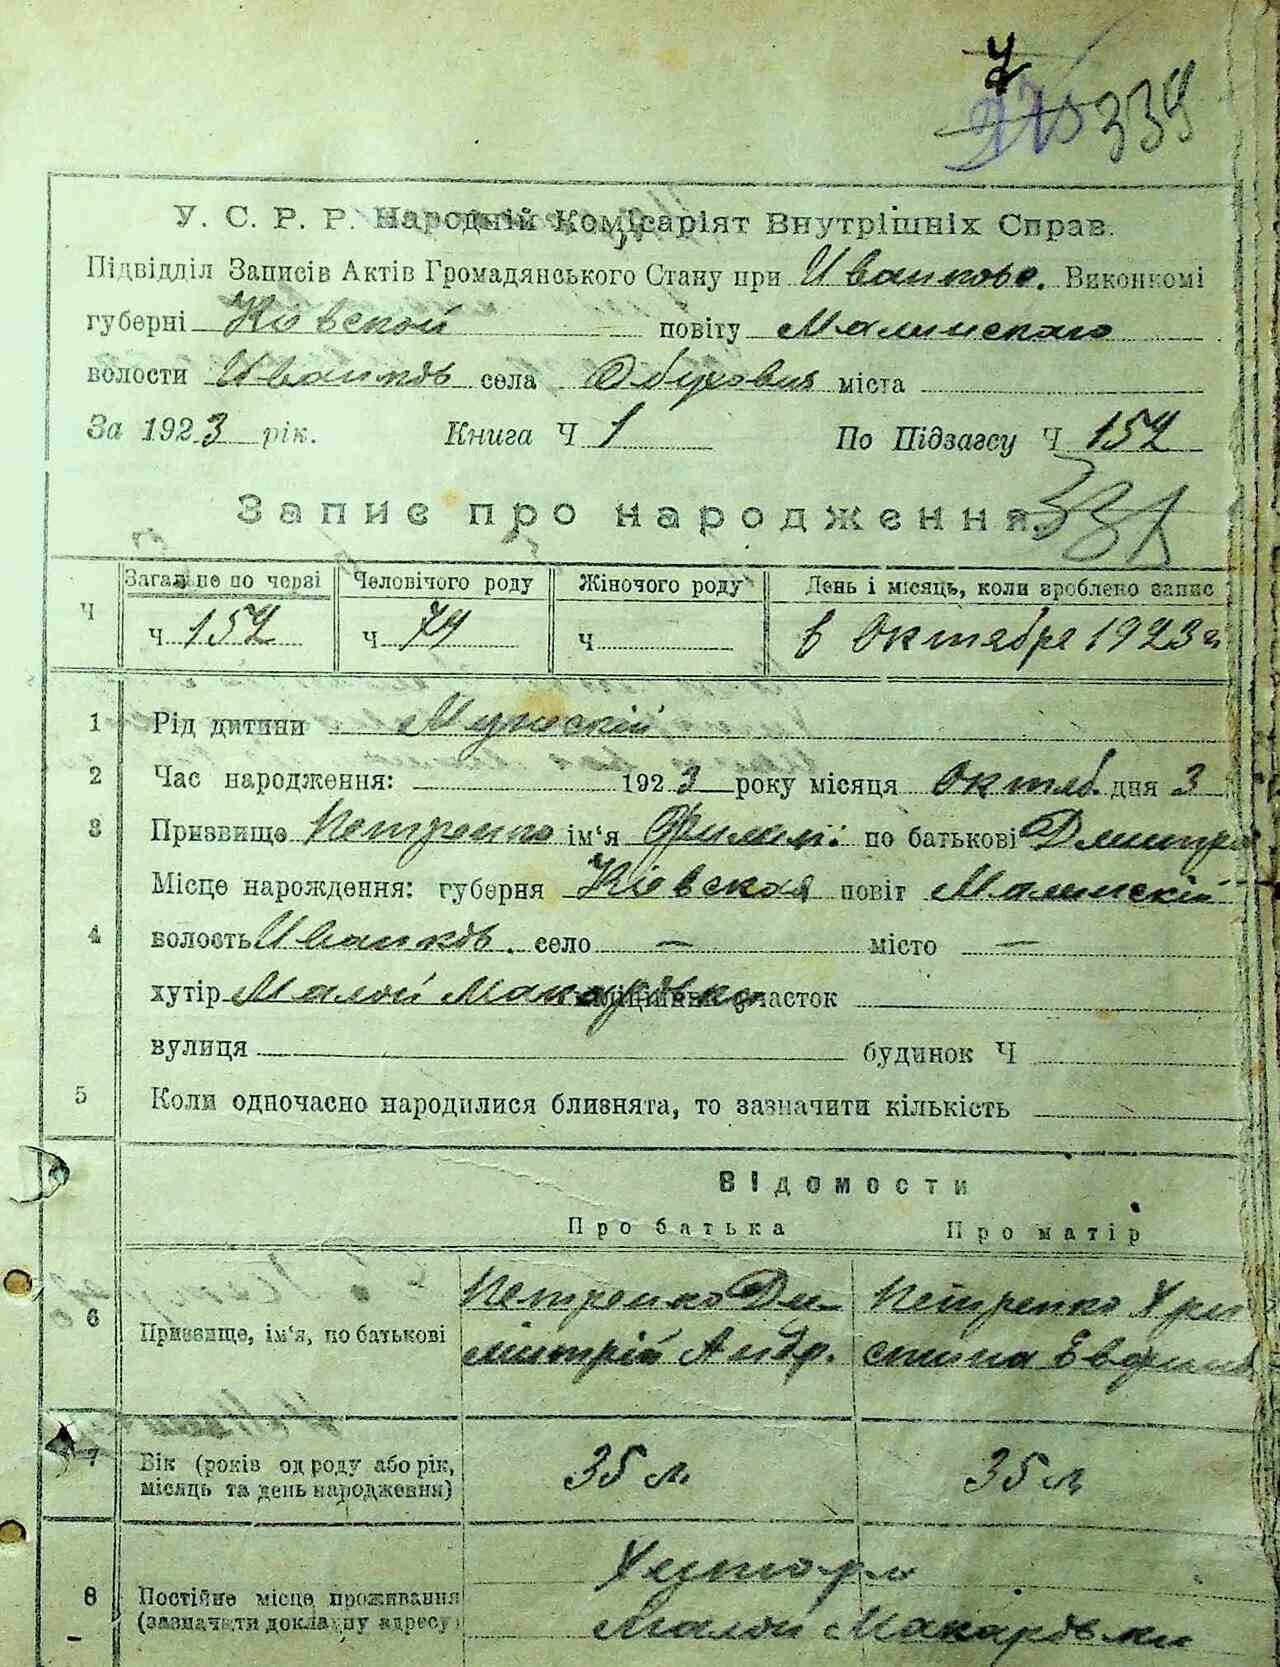 339
У. С. Р. Р. Народній Комісаріят Внутрішніх Справ.
Підвідділ Записів Актів Громадянського Стану при Иванков. Виконкомі
губерні Кіевской повіту Малинскаго
волости Иванков села Обуховичи міста
За 1923 рік. Книга Ч 1 По Підзагсу Ч 152
Запис про народження.
Ч Загальне по черзі Человічого роду Жіночого роду День і місяць, коли зроблено запис
Ч 152 Ч 74 Ч 6 Октября 1923 г
1 Рід дитини Мужескій
2 Час народження: 1923 року місяця Октяб. дня 3
3 Призвище Петренко ім‘я Филип. по батькові Дмитров
4 Місце нарождення: губерня Кіевская повіт Малинскій
волость Иванков. село — місто —
хутір Малой Макаровки участок
вулиця будинок Ч
5 Коли одночасно народилися близнята, то зазначити кількість
Відомости
Про батька Про матір
6 Призвище, ім‘я, по батькові Петренко Ди- Петренко Хри
митрій Андр. стина Евфимов
7 Вік (років од роду або рік, місяць та день народження) 35 л. 35 л.
8 Постійне місце проживання (зазначити докладну адресу) Хутора
Малой Макаровки